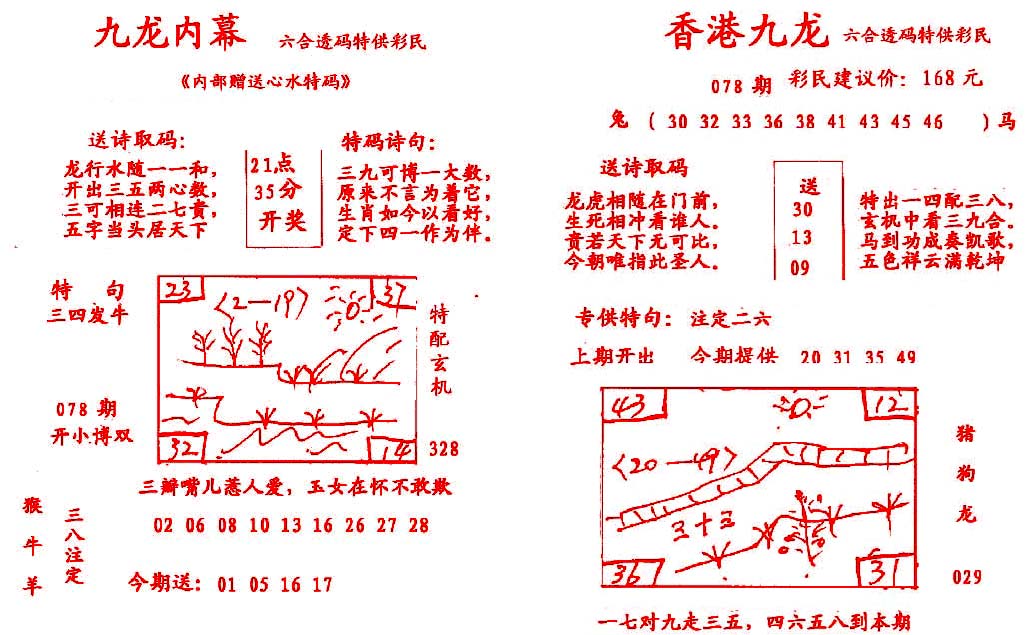 九龙内幕 六合透码特供彩民
《内部赠送心水特码》
送诗取码：
龙行水随一一和，
开出三五两心数，
三可相连二七贵，
五字当头居天下
21点
35分
开奖
特码诗句：
三九可博一大数，
原来不言为着它，
生肖如今以看好，
定下四一作为伴。
特 句
三四发牛
078 期
开小博双
23
37
〈2—19〉
32
14
特配玄机
328
三瓣嘴儿惹人爱，玉女在怀不敢欺
02 06 08 10 13 16 26 27 28
猴牛羊
三八注定
今期送：01 05 16 17
香港九龙 六合透码特供彩民
078 期 彩民建议价：168 元
兔 （ 30 32 33 36 38 41 43 45 46 ）马
送诗取码
龙虎相随在门前，
生死相冲看谁人。
贵若天下无可比，
今朝唯指此圣人。
送
30
13
09
特出一四配三八，
玄机中看三九合。
马到功成奏凯歌，
五色祥云满乾坤
专供特句：注定二六
上期开出 今期提供 20 31 35 49
43
12
〈20—49〉
三十三
36
31
猪狗龙
029
一七对九走三五，四六五八到本期